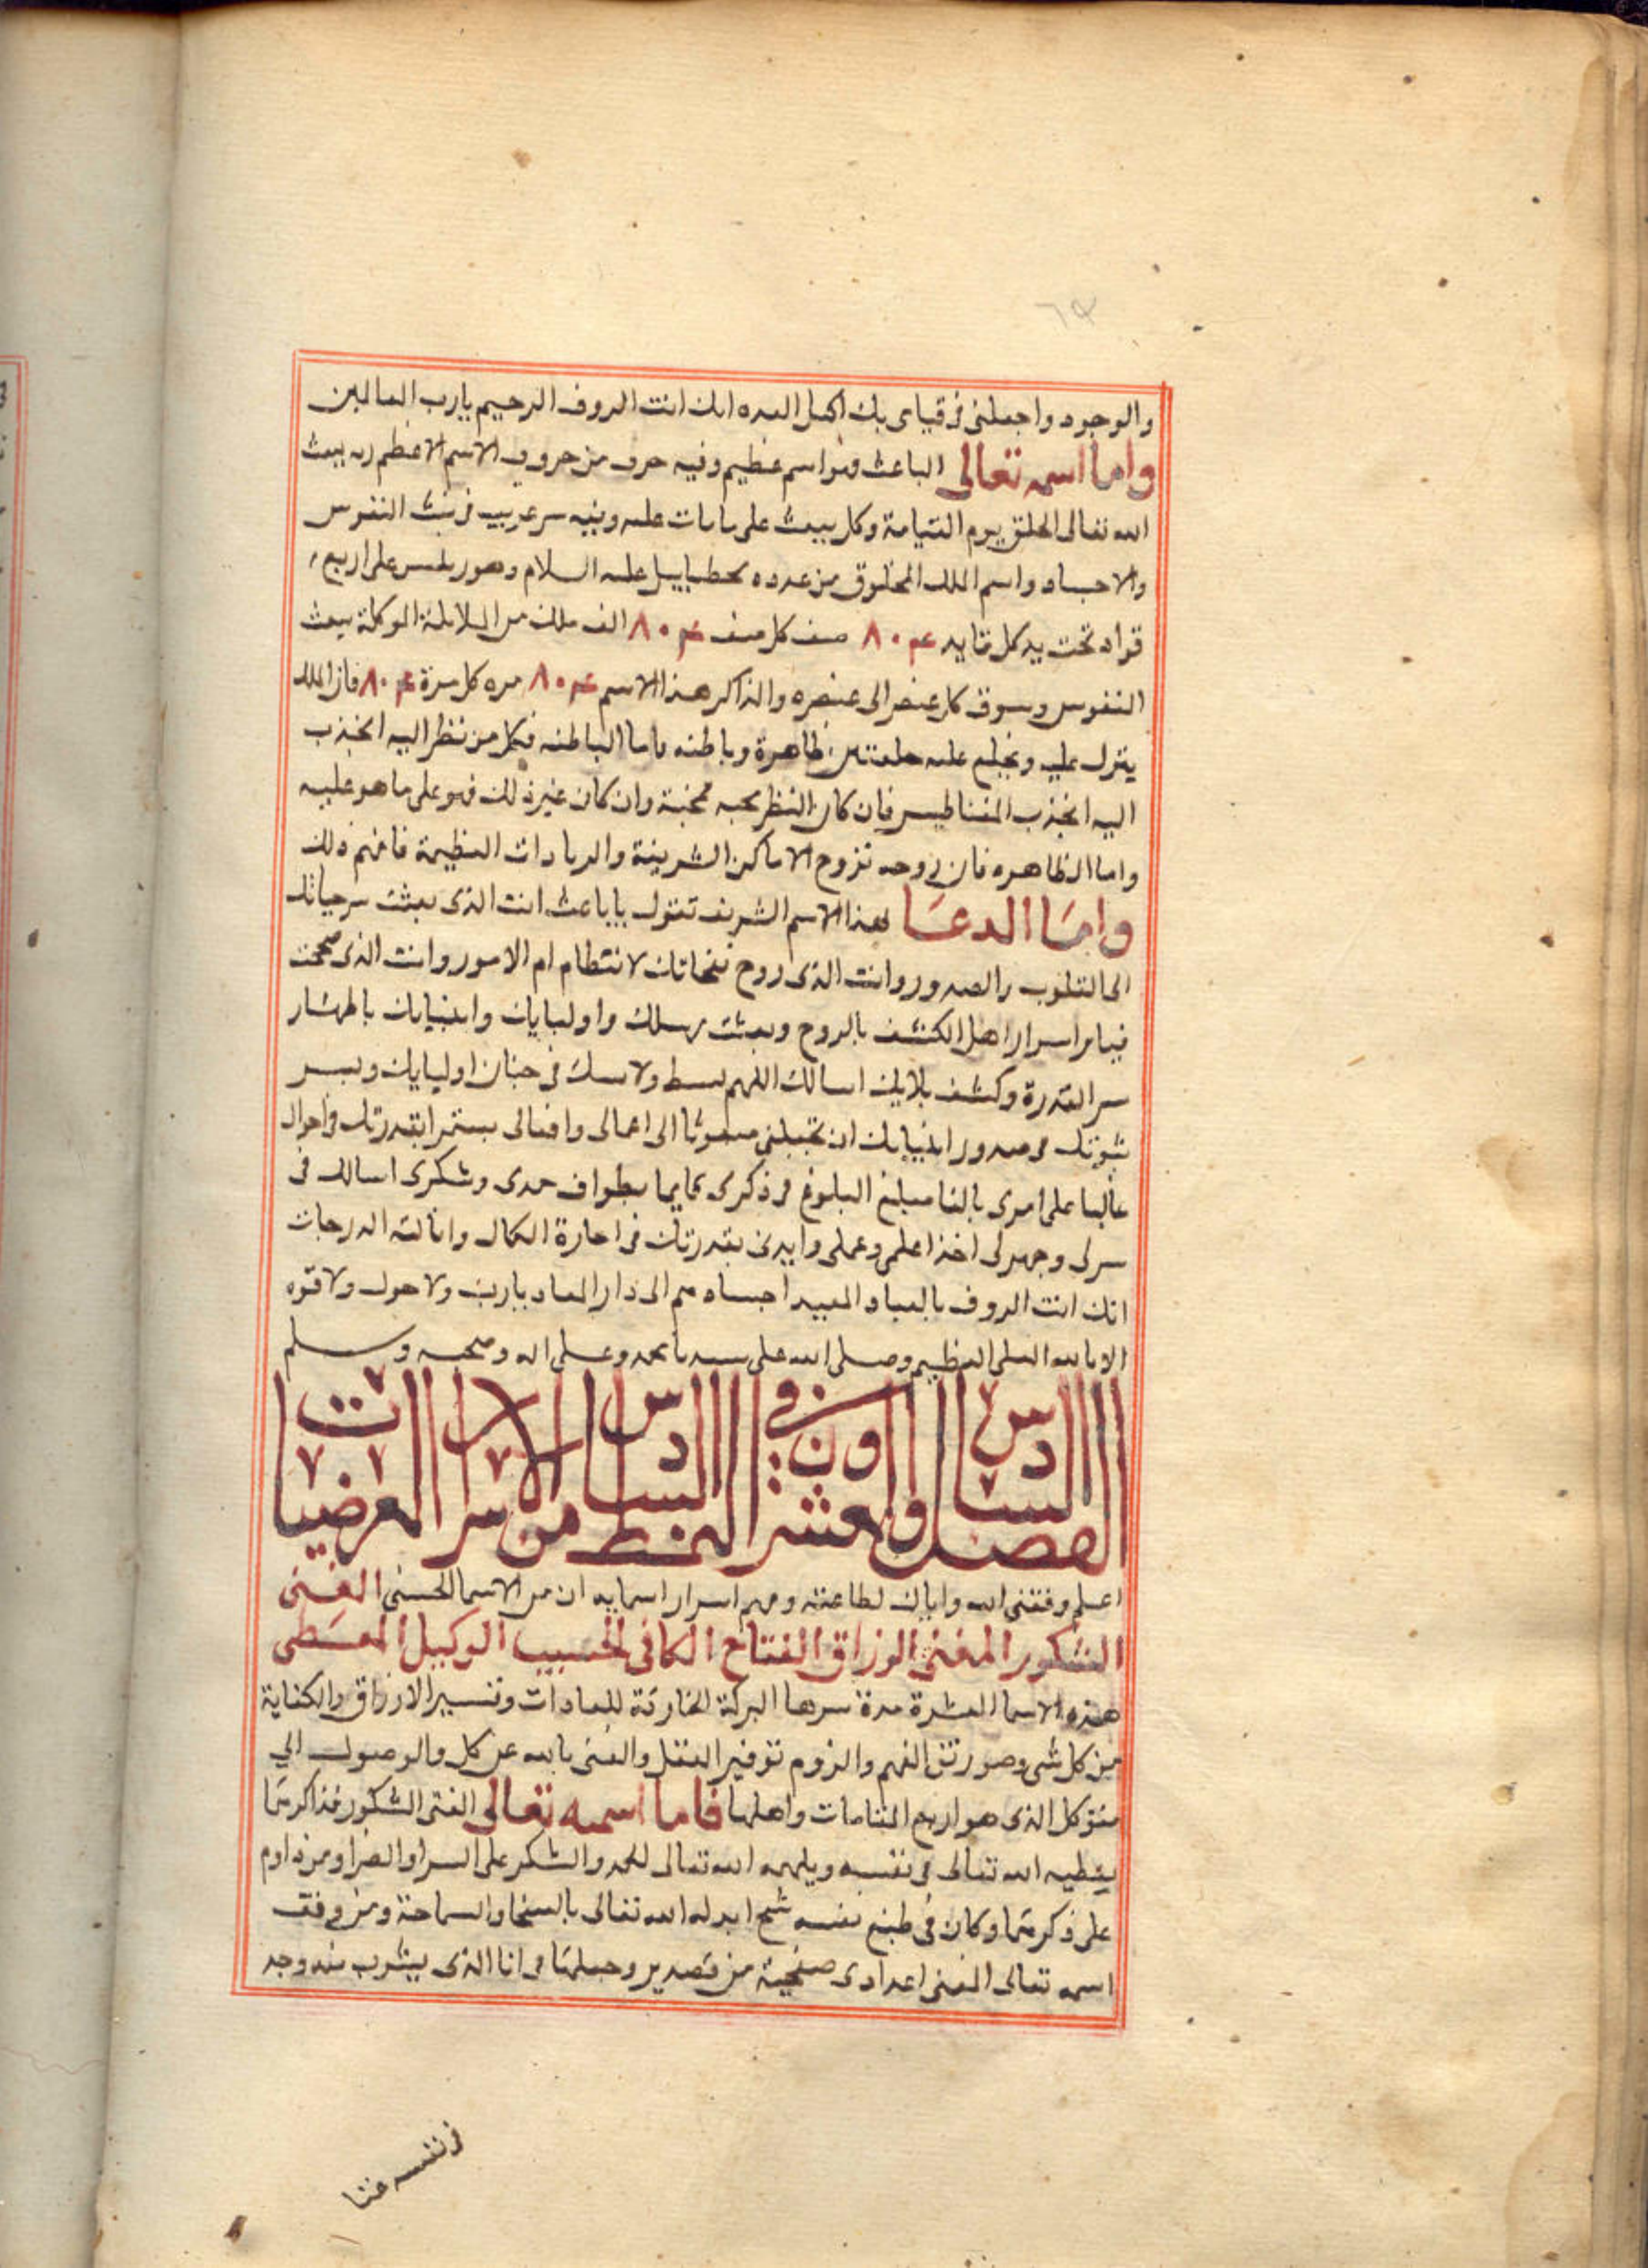 والوجود واجعلنى فى قيامى بك اكمل العده انك انت الروف الرحيم يارب العالمين
واما اسمه تعالى الباعث فهو اسم عظيم وفيه حرف من حروف الاسم الاعظم وبه يبعث
الله تعالى الخلق يوم القيامة وكل يبعث على ما مات عليه وفيه سر غريب فى بث النفوس
والاجساد واسم الملك المخلوق من عدده عليه السلام وهو ريس على اربع
قواد تحت يد كل قايد ٨٠ صف كل صف ٨٠ الف ملك من الملايكة الموكلة ببعث
النفوس وسوق كل عنصر الى عنصره والذاكر هذا الاسم ٨٠ مره كل مرة ٨٠ فان الملك
ينزل عليه ويخلع عليه خلعتين ظاهرة وباطنه فاما الباطنه فكل من نظر اليه انجذب
اليه انجذاب المغناطيس فان كان النظر محبه فمحبة وان كان غير ذلك فهو على ما هو عليه
واما الظاهره فان روحه تزوح الاماكن الشريفة والعظيمة فافهم ذلك
واما الدعا بهذا الاسم الشريف تقول ياباعث انت الذى بعثت سر حياتك
الى القلوب والصدور وانت الذى روح نفحاتك لانتظام ام الامور وانت الذى
اسرار اهل الكشف بالروح وبعثت رسلك واوليايك وانبيايك باظهار
سر القدرة وكشف بلايك اسالك اللهم ببسط ولايتك فى جنان اوليايك وبسر
نبوتك فى صدور انبيايك ان تجعلنى مبعوثا الى اعمالى وافعالى بقدرتك واحوال
غالبا على امرى بالغا مبلغ البلوغ فى ذكرى بطواف حمدى وشكرى اسالك فى
سرى وجهرى اخذا علمى وعملى وايدنى بقدرتك فى الكمال وانالة الدرجات
انك انت الروف بالعباد المعيد الى دار المعاد يارب ولا حول ولا قوه
الا بالله العلى العظيم وصلى الله على سيدنا محمد وعلى اله وصحبه وسلم
الفصل السادس والعشرون فى النمط السادس من الاسرار العرضيات
اعلم وفقنى الله واياك لطاعته وفهم اسرار اسمايه ان من الاسما الحسنى الغنى
الشكور المغنى الرزاق الفتاح الكافى الحسيب الوكيل المعطى
هذه الاسما العشرة سرها البركة الخارقة للعادات وتيسير الارزاق والكفاية
من كل شى الفهم توفير العقل والغنى بالله عن كل والوصول الى
متوكل الذى هو اربع المقامات واهلها فاما اسمه تعالى الغنى الشكور فذاكرهما
يعطيه الله تعالى فى نفسه ويلهمه الله تعالى الحمد والشكر على السرا والضرا ومن داوم
على ذكرهما وكان فى طبع نفسه شح ابدله الله تعالى بالسخا والسماحة ومن وفق
اسمه تعالى الغنى اعدادى فى صفيحة من قصدير وجعلها فى انا الذى يشرب منه وجد
فى نفسه غنا